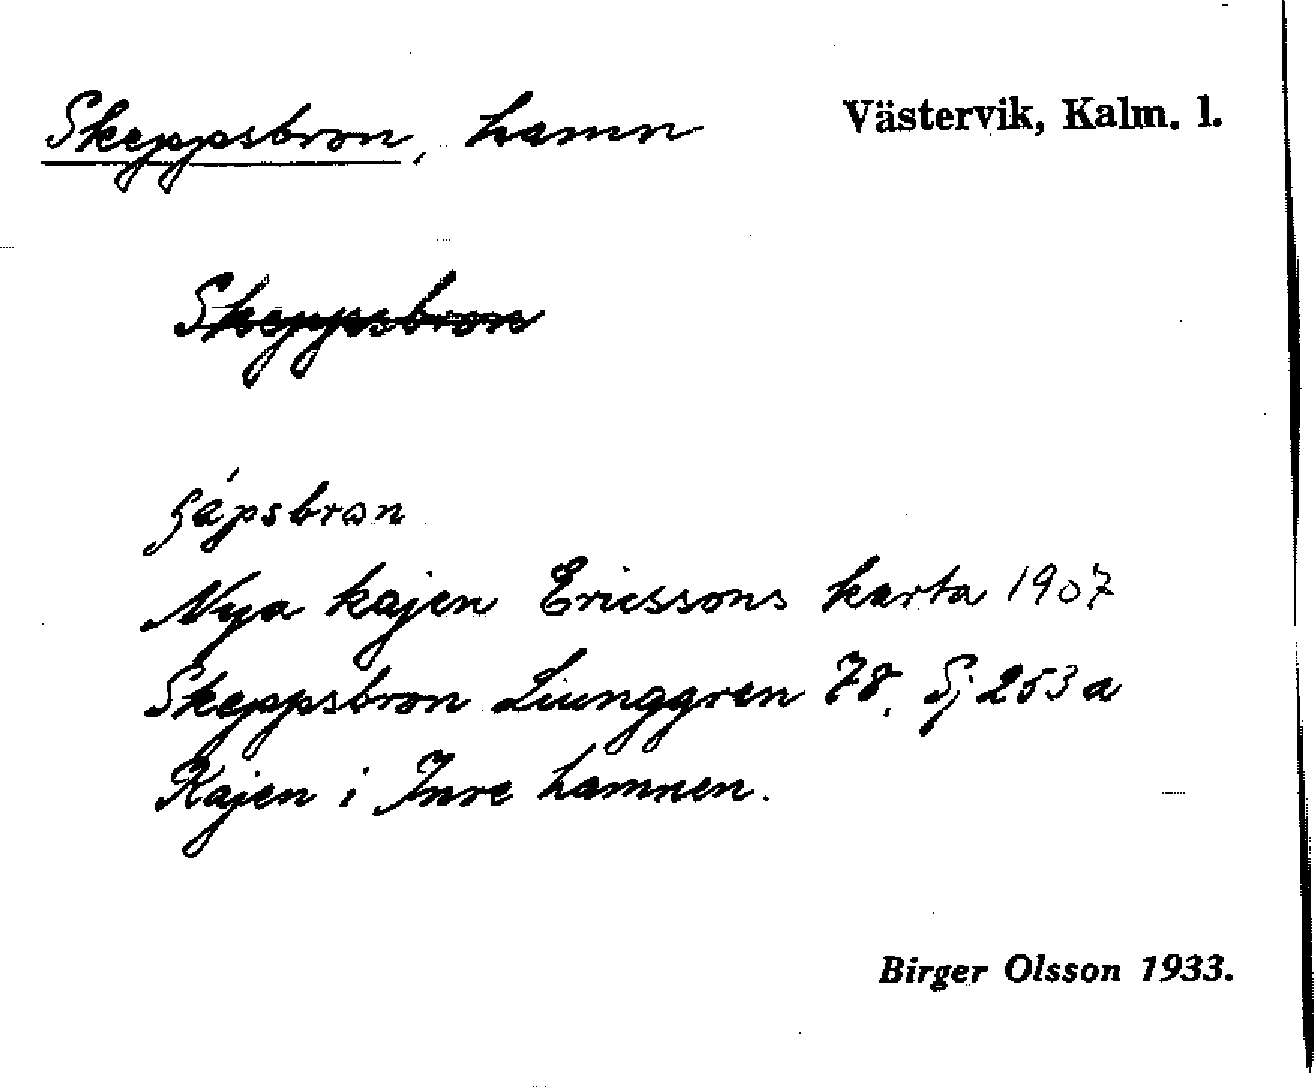 Skeppsbron, hamn
Västervik, Kalm. l.
Skeppsbron
Nya kajen Ericssons karta 1907
Skeppsbron Liunggren 78. Sj 253 a
Kajen i Inre hamnen.
Birger Olsson 1933.